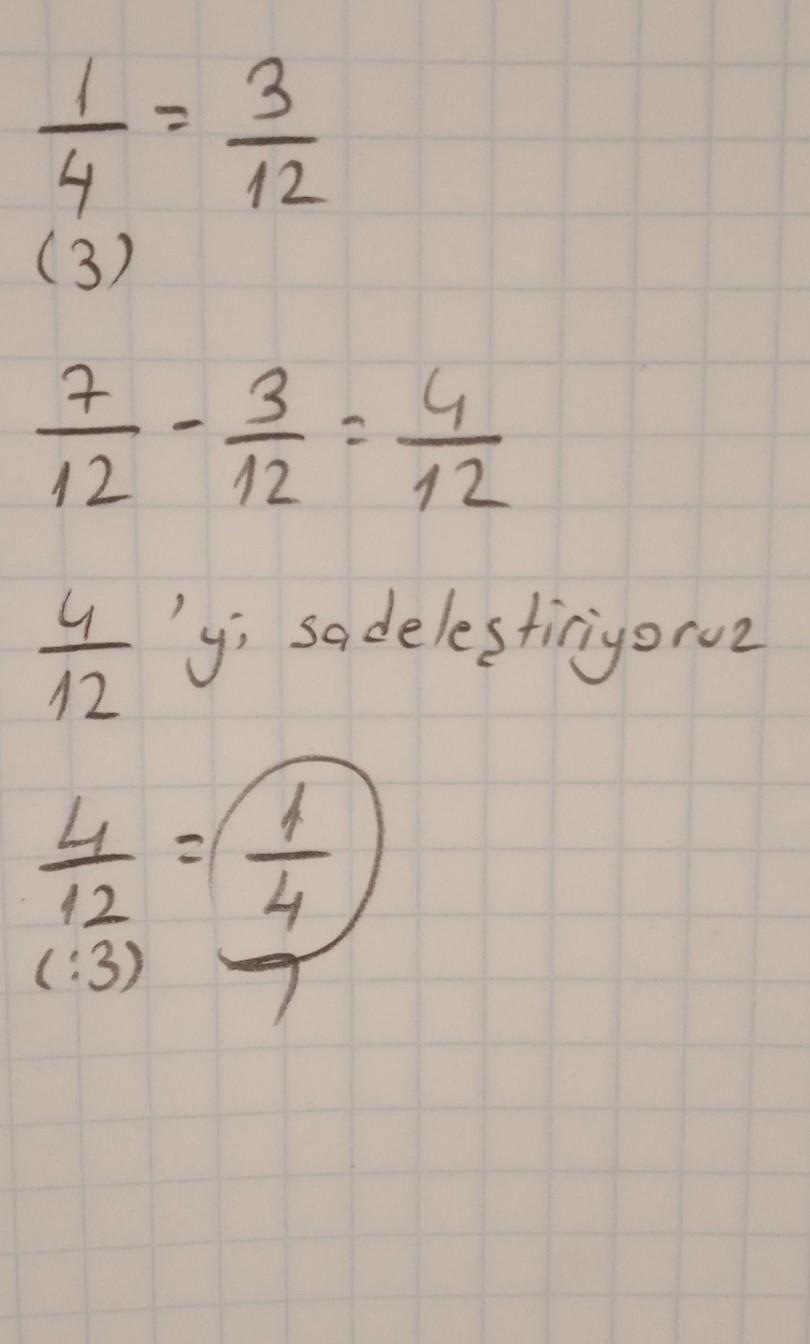 1/4 = 3/12
(3)
7/12 - 3/12 = 4/12
4/12 'yi sadeleştiriyoruz
4/12 = 1/4
(:3)